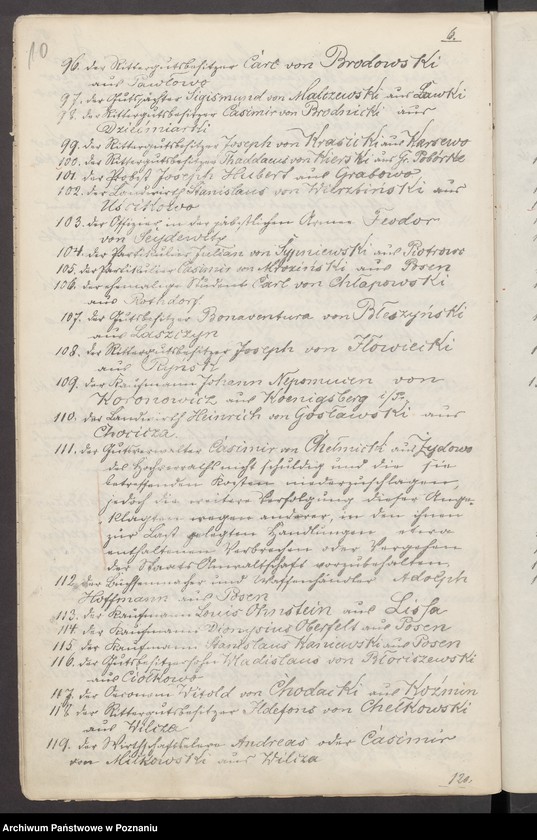 10
6.
96. der Rittergutsbesitzer Carl von Brodowski
aus Pawłowo
97. der Gutspächter Sigismund von Malczewski aus Ławki
98. der Rittergutsbesitzer Casimir von Brodnicki aus
Dziemiarki
99. der Rittergutsbesitzer Joseph von Krasicki aus Karsewo
100. der Rittergutsbesitzer Thaddaeus von Kierski aus Gr. Pobórke
101. der Probst Joseph Hubert aus Grabowo
102. der Landwirth Stanislaus von Wilrzbiński aus
Uścikowo
103. der Offizier in der päbstlichen Armee Feodor
von Seydewitz
104. der Partikulier Julian von Sypniewski aus Piotrowo
105. der Partikulier Casimir von Mroziński aus Posen
106. der ehemalige Student Carl von Chlapowski
aus Rothdorf
107. der Gutsbesitzer Bonaventura von Błeszyński
aus Łaszczyn
108. der Rittergutsbesitzer Joseph von Jłowiecki
aus Rynsk
109. der Kaufmann Johann Nepomucen von
Koronowicz aus Koenigsberg i/Pr.
110. der Landwirth Heinrich von Gosławski aus
Chocicza.
111. der Gutsverwalter Casimir von Chełmicki aus Żydowo
des Hochverraths nicht schuldig und die sie
betreffenden Kosten niederzuschlagen,
jedoch die weitere Verfolgung dieser Ange-
klagten wegen anderer, in den ihnen
zur Last gelegten Handlungen etwa
enthaltenen Verbrechen oder Vergehen
der Staats Anwaltschaft vorzubehalten.
112. der Büchsenmacher und Waffenhändler Adolph
Hoffmann aus Posen
113. der Kaufmann Louis Ohnstein aus Lissa
114. der Kaufmann Dionysius Oberfelt aus Posen
115. der Kaufmann Stanislaus Kaniewski aus Posen
116. der Gutsbesitzersohn Wladislaus von Bloriszewski
aus Ciołkowo
117. der Oeconom Witold von Chodacki aus Koźmin
118. der Rittergutsbesitzer Jldefons von Chełkowski
aus Wilcza
119. der Wirthschaftseleve Andreas oder Casimir
von Miłkowski aus Wilcza
120.
Archiwum Państwowe w Poznaniu